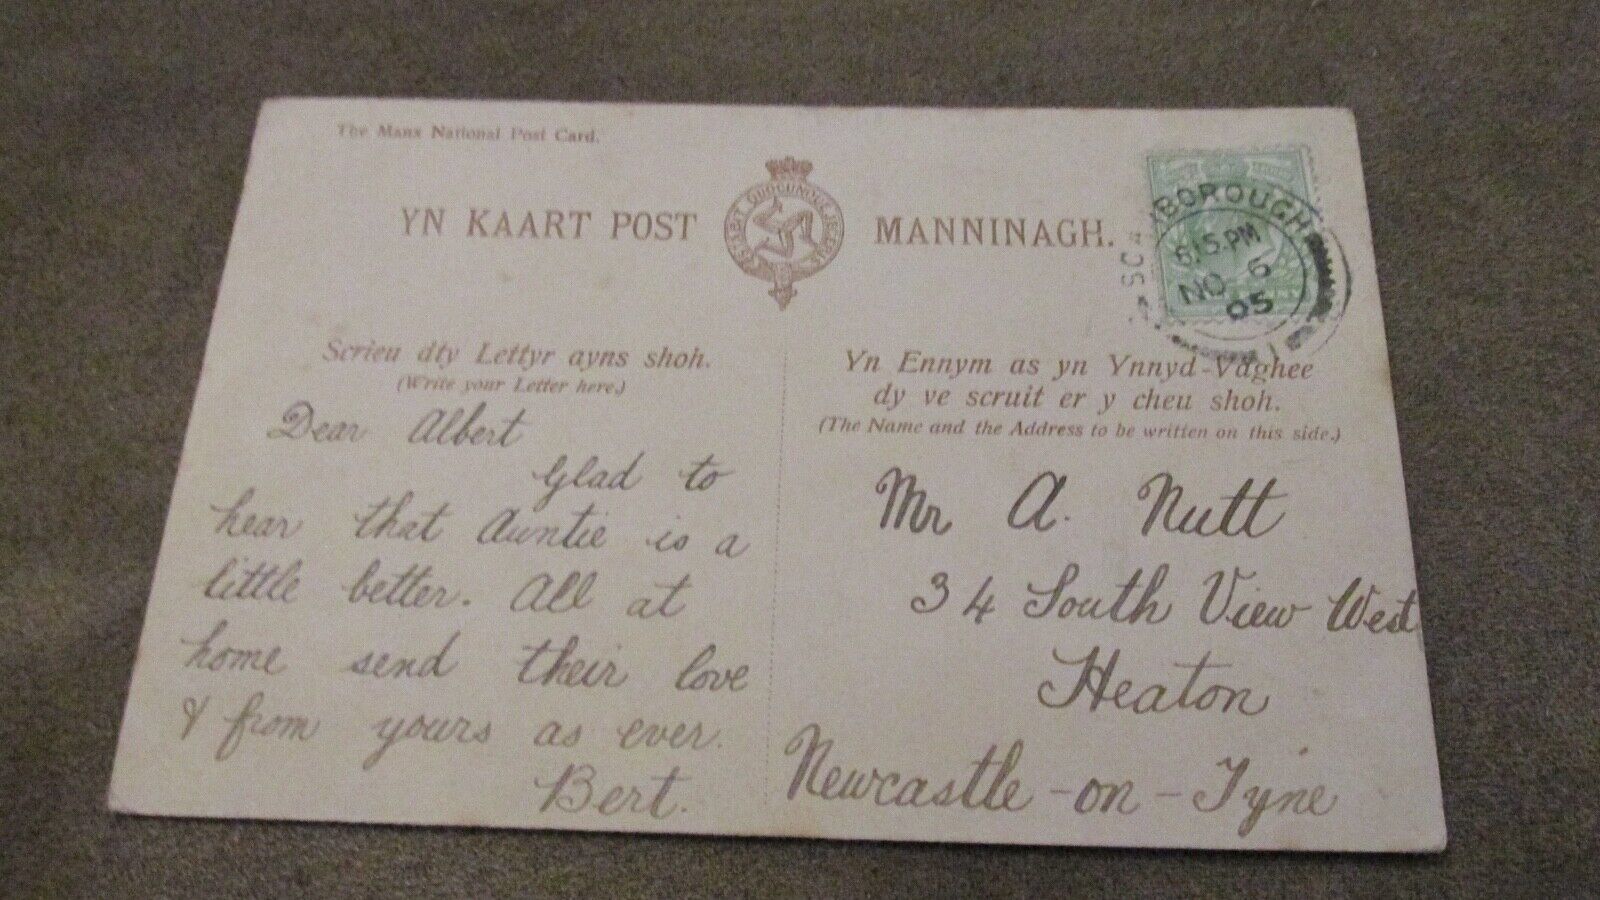 The Manx National Post Card.
YN KAART POST
MANNINAGH.
SCARBOROUGH
8.15.PM
NO 6
05
Scrieu dty Lettyr ayns shoh.
(Write your Letter here.)
Dear Albert
Glad to
hear that Auntie is a
little better. All at
home send their love
& from yours as ever.
Bert.
Yn Ennym as yn Ynnyd-Vaghee
dy ve scruit er y cheu shoh.
(The Name and the Address to be written on this side.)
Mr A. Nutt
34 South View West
Heaton
Newcastle-on-Tyne